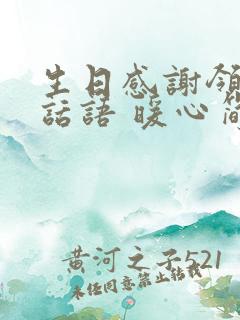 生日感謝領
話語 暖心 簡
黄河之子521
未任同意禁止轉載